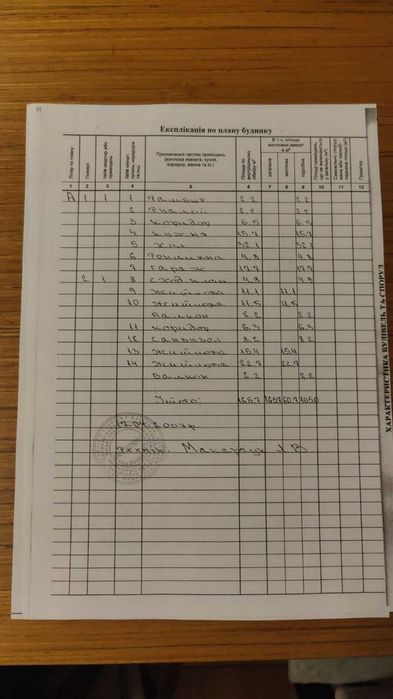 Експлікація по плану будинку
Літер по плану
Поверх
Призначення частин приміщень (житлова кімната, кухня, коридор, ванна та ін.)
Площа по внутрішньому обміру м²
В т.ч. площа житлових кімнат в м²
загальна
житлова
підсобна
Примітка
1 2 3 4 5 6 7 8 9 10 11 12
А 1 1 1 Тамбур 2.2 2.2
2 Туалет 2.2 2.2
3 коридор 6.5 6.5
4 кухня 15.7 15.7
5 хол 32.1 32.1
6 Топкова 4.8 4.8
7 гараж 17.7 17.7
2 1 8 4.9 4.9
9 житлова 11.1 11.1
10 житлова 11.5 11.5
балкон 2.2 2.2
11 коридор 6.3 6.3
12 санвузол 8.2 8.2
13 житлова 15.4 15.4
14 житлова 22.7 22.7
балкон 2.2 2.2
165.7 165.7 60.7 105.0
технік: Макарчук
ХАРАКТЕРИСТИКА БУДІВЕЛЬ ТА СПОРУД